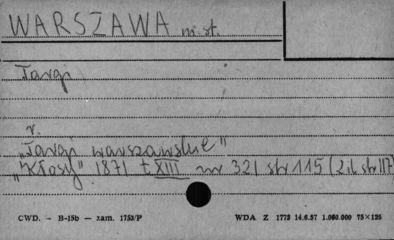 WARSZAWA m. st.
Targi
r.
"Targi warszawskie"
"Kłosy" 1871 t XIII nr 321 str 115 (2 il. str 117)
CWD. – B-15b – zam. 1753/P WDA Z 1773 14.6.57 1.000.000 75×125